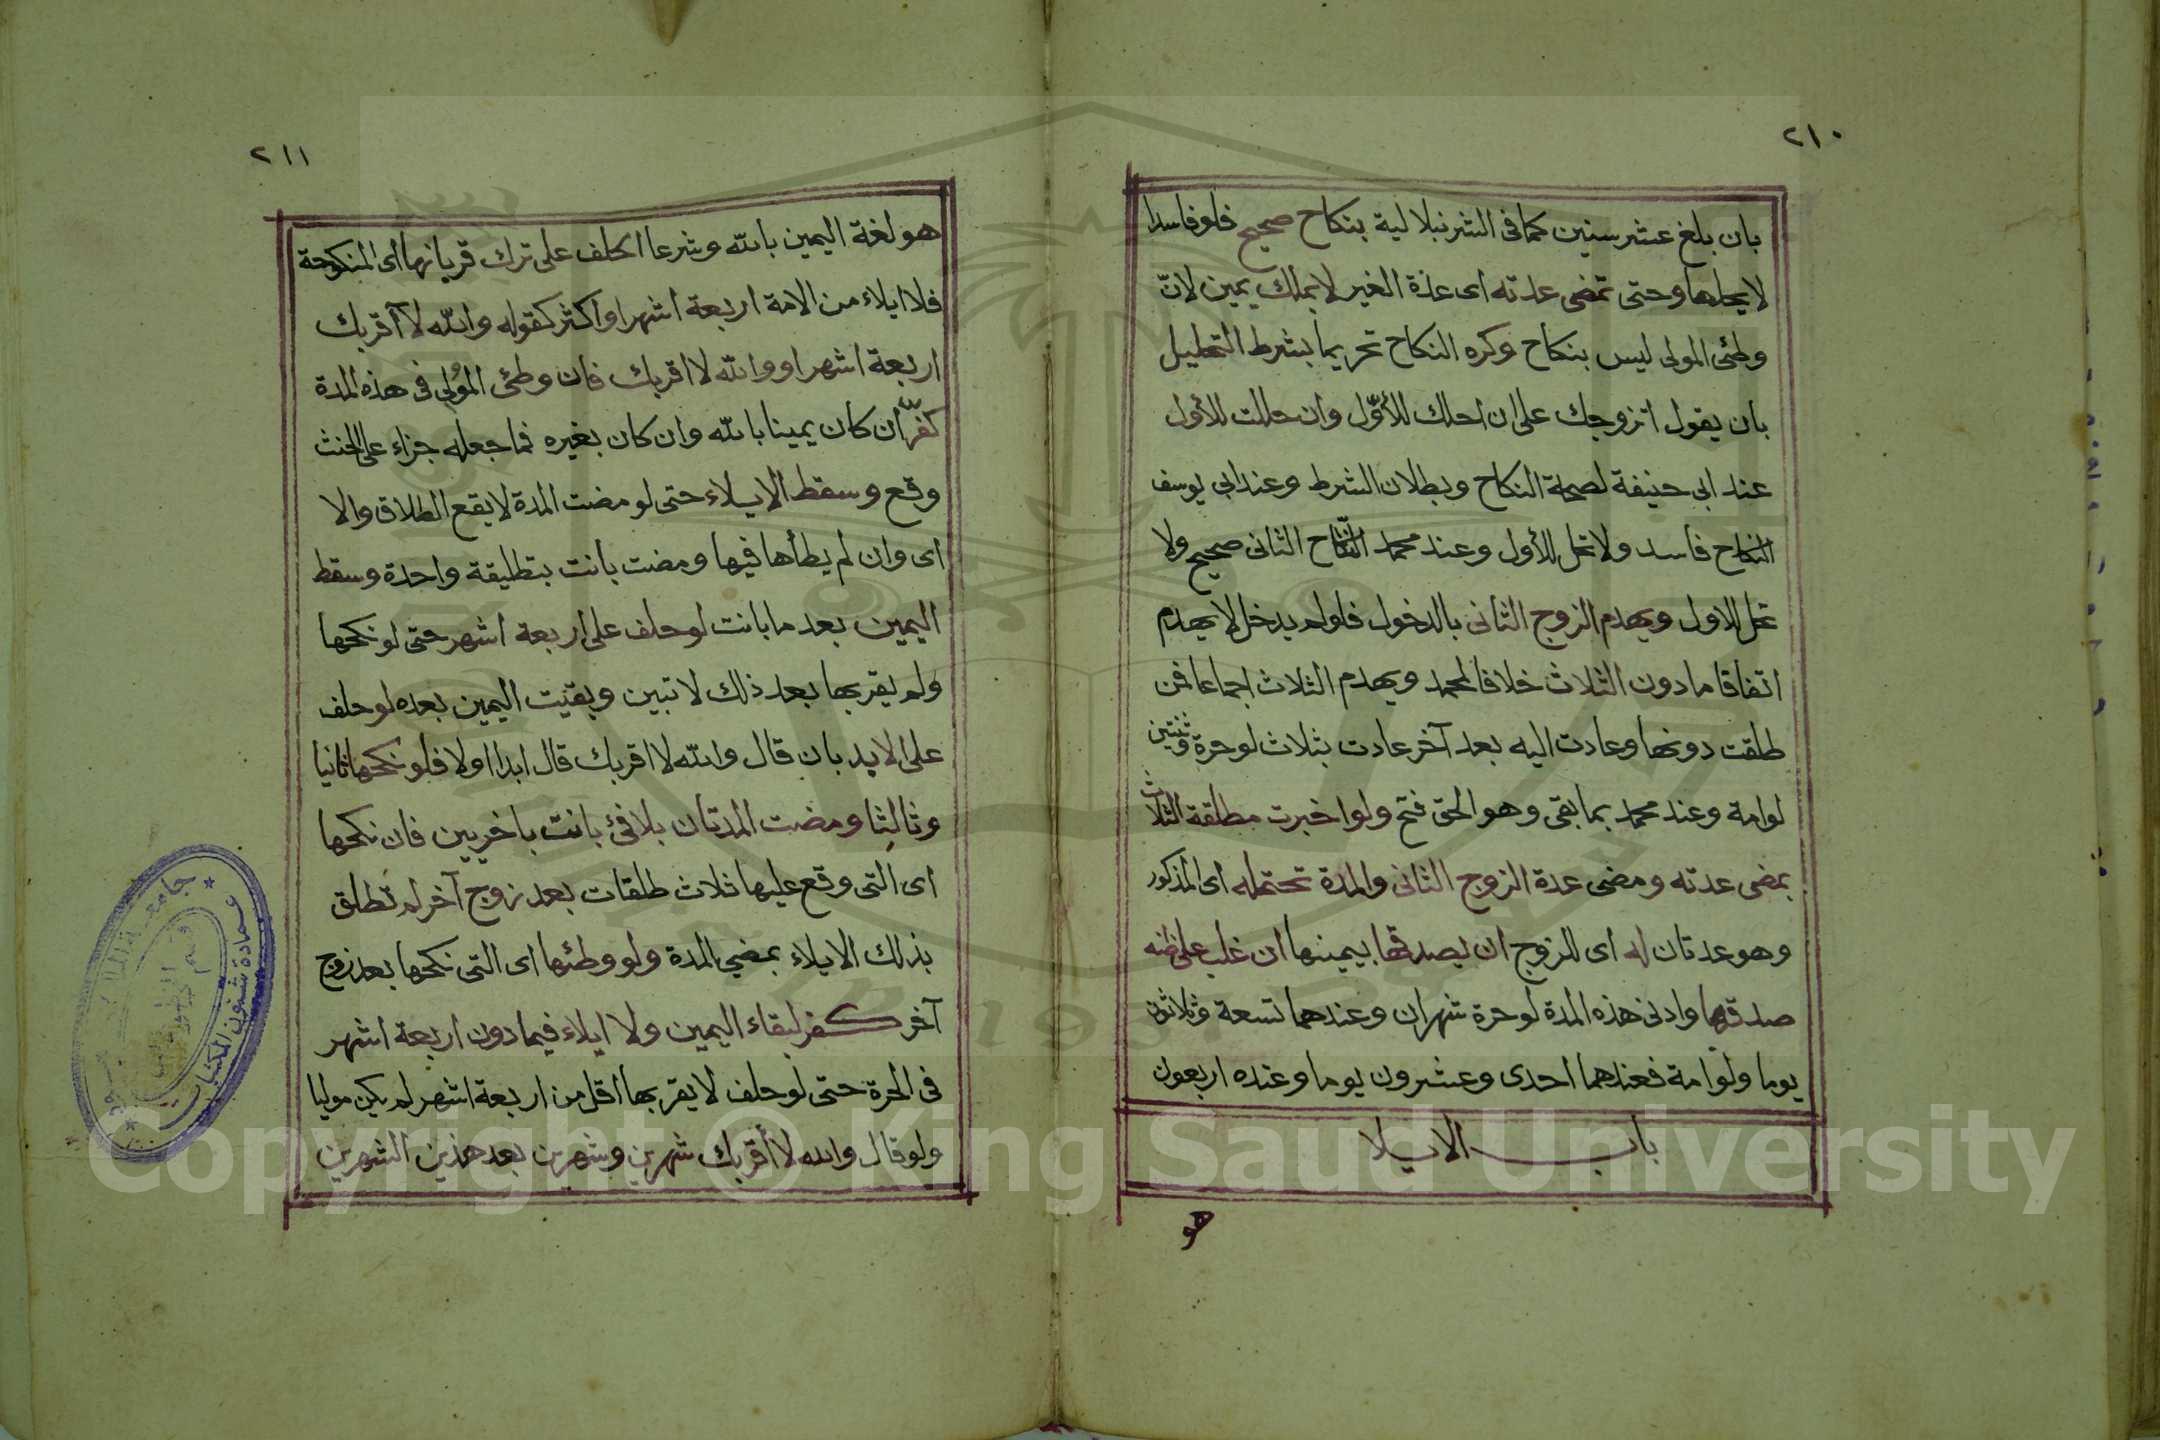 ٢١٠
بان بلغ عشر سنين كما فى الشرنبلالية بنكاح صحيح فلو فاسدا
لا يحلها وحتى تمضى عدته اى عدة الغير لا بملك يمين لانّ
وطئ المولى ليس بنكاح وكره النكاح تحريما بشرط التحليل
بان يقول اتزوجك على ان احلك للأوّل وان حللت للأول
عند ابى حنيفة لصحة النكاح وبطلان الشرط وعند ابى يوسف
النكاح فاسد ولا تحل للأول وعند محمد النّكاح الثانى صحيح ولا
تحل للاول ويهدم الزوج الثانى بالدخول فلو لم يدخل لا يهدم
اتفاقا مادون الثلاث خلافا لمحمد ويهدم الثلاث اجماعا فمن
طلقت دونها وعادت اليه بعد آخر عادت بثلاث لو حرة وثنتين
لو امة وعند محمد بما بقى وهو الحق فتح ولو اخبرت مطلقة الثلاث
بمضى عدته ومضى عدة الزوج الثانى والمدة تحتمله اى المذكور
وهو عدتان له اى للزوج ان يصدقها بيمينها ان غلب على ظنه
صدقها وادنى هذه المدة لو حرة شهران وعندهما تسعة وثلاثون
يوما ولو امة فعندهما احدى وعشرون يوما وعنده اربعون
باب الايلا
هو
٢١١
هو لغة اليمين بالله وشرعا الحلف على ترك قربانها اى المنكوحة
فلا ايلاء من الامة اربعة اشهر او اكثر كقوله والله لا أقربك
اربعة اشهر او والله لا اقربك فان وطئ المُولى فى هذه المدة
كفّر ان كان يمينا بالله وان كان بغيره فما جعله جزاء على الحنث
وقع وسقط الايلاء حتى لو مضت المدة لا يقع الطلاق والا
اى وان لم يطأها فيها ومضت بانت بتطليقة واحدة وسقط
اليمين بعد ما بانت لو حلف على اربعة اشهر حتى لو نكحها
ولم يقربها بعد ذلك لا تبين وبقيت اليمين بعده لو حلف
على الابد بان قال والله لا اقربك قال ابدا اولا فلو نكحها ثانيا
وثالثا ومضت المدتان بلا فئ بانت باخريين فان نكحها
اى التى وقع عليها ثلاث طلقات بعد زوج آخر لم تطلق
بذلك الايلاء بمضي المدة ولو وطئها اى التى نكحها بعد زوج
آخر كفر لبقاء اليمين ولا ايلاء فيما دون اربعة اشهر
فى الحرة حتى لو حلف لا يقربها اقل من اربعة اشهر لم يكن موليا
ولو قال والله لا أقربك شهرين وشهرين بعد هذين الشهرين
عمادة شئون المكتبات
Copyright © King Saud University